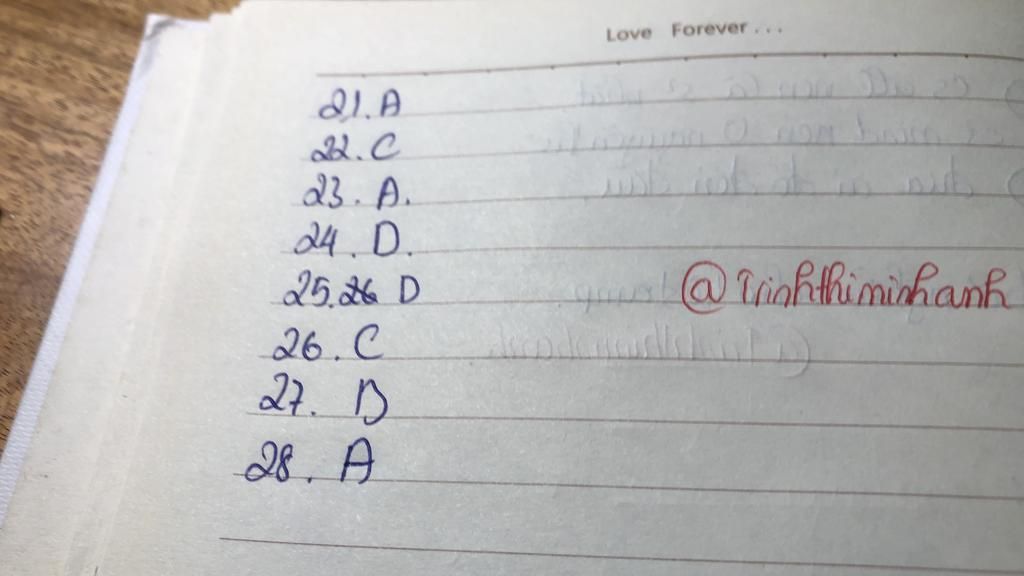 Love Forever...
21. A
22. C
23. A.
24. D.
25. D
@Trinhthiminhanh
26. C
27. B
28. A